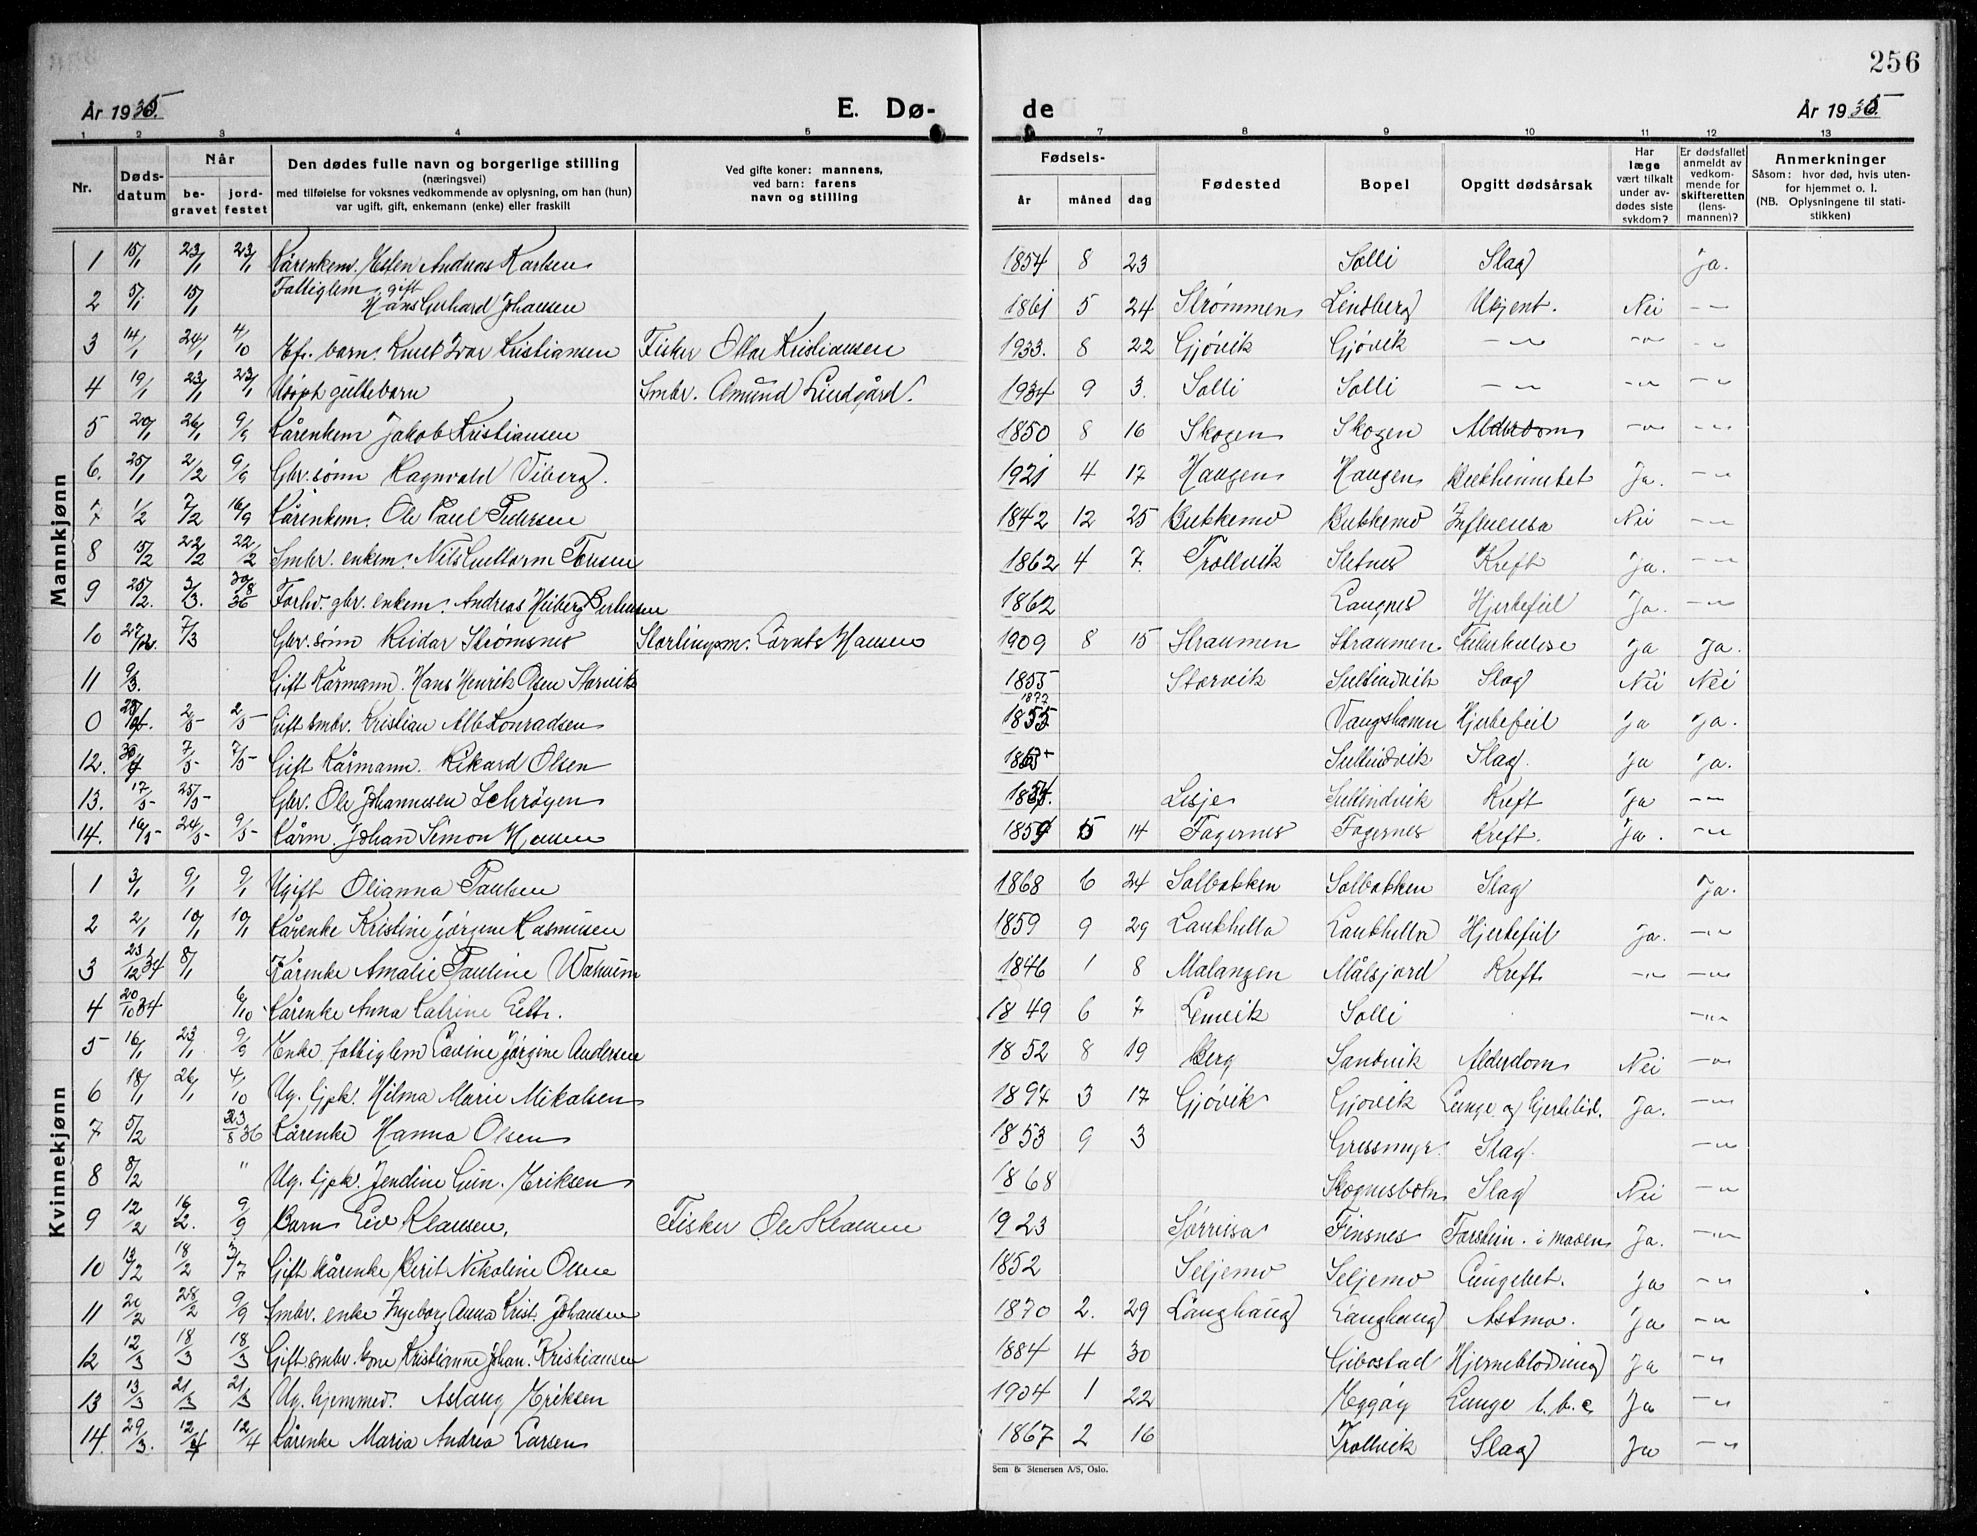 256
År 1935.
E. Dø-
de
År 1935.
1 2 3 4 5 7 8 9 10 11 12 13
Nr.
Døds-
datum
Når
be-
gravet
jord-
festet
Den dødes fulle navn og borgerlige stilling
(næringsvei)
med tilføielse for voksnes vedkommende av oplysning, om han (hun)
var ugift, gift, enkemann (enke) eller fraskilt
Ved gifte koner: mannens,
ved barn: farens
navn og stilling
Fødsels-
år måned dag
Fødested
Bopel
Opgitt dødsårsak
Har
læge
vært tilkalt
under av-
dødes siste
sykdom?
Er dødsfallet
anmeldt av
vedkom-
mende for
skifteretten
(lens-
mannen)?
Anmerkninger
Såsom: hvor død, hvis uten-
for hjemmet o. l.
(NB. Oplysningene til stati-
stikken)
Mannkjønn
1 15/1 23/1 23/1 Kårenkem. Esten Andreas Karlsen 1854 8 23 Solli Slag Ja.
2 5/1 15/1 Fattiglem gift Hans Gerhard Johansen 1861 5 24 Strømmen Lindberg Ukjent. Nei -"-
3 14/1 24/1 4/10 Ef. barn. Knut Ivar Kristiansen Fisker Ottar Kristiansen 1933. 8 22 Gjøvik Gjøvik -"- -"- -"-
4 19/1 23/1 23/1 Udøpt guttebarn Smbr. Amund Lindgård. 1934 9 3. Solli Solli -"- -"- -"-
5 20/1 26/1 9/9 Kårenkem Jakob Kristiansen 1850 8 16 Skogen Skogen Alderdom -"- -"-
6. 25/1 2/2 9/9 Gbr. sønn Ragnvald Viberg. 1921 4 17 Haugen Haugen Ja. -"-
7 1/2 7/2 16/9 Kårenkem. Ole Paul Pedersen 1842 12 25 Bukkemo Bukkemo Influensa Nei -"-
8 15/2 22/2 22/2 Smbr. enkem. Nils Guttorm Tønsen 1862 4 7. Trollvik Sletnes Kreft Ja. -"-
9 25/2. 3/3. 30/8 36 Forhv. gbr. enkem. Andreas Heiberg Berthensen 1862 Laugnes Hjertefeil Ja. -"-
10 27/2. 7/3 Gbr. sønn Reidar Strømsnes Stortingsm. Cornts Hansen 1909 8 15 Straumen Straumen Tuberkulose Ja Ja.
11 9/3. Gift Kårmann. Hans Henrik Olsen Storvik 1855 Storvik Sultindvik Slag Nei Nei
0 25/4. 2/5 2/5 Gift smbr. Kristian Alb Konradsen 1877 1855 Vangshamn Hjertefeil Ja Ja.
12. 30/4 7/5 7/5 Gift Kårmann. Rikard Olsen 1865 Sultindvik Slag. Ja Ja.
13. 17/5 25/5 Gbr. Ole Johannesen Schrøyen 1854. Lesje Sultindvik Kreft Ja -"-
14. 16/5 24/5 9/5 Kårm. Johan Simon Hansen 1859 5 14 Fagernes Fagernes Kreft. Ja. -"-
Kvinnekjønn
1 3/1 9/1 9/1 Ugift Olianna Paulsen 1868 6 24 Solbakken Solbakken Slag Ja.
2 2/1 10/1 10/1 Kårenke Kristine Jørgine Rasmusen 1859 9 29 Laukhella Laukhella Hjertefeil Ja. -"-
3 23/12 34 8/1 Kårenke Amalie Pauline Wahum 1846 1 8 Malangen Målsjord Kreft -"- -"-
4 20/10 34 6/10 Kårenke Anna Katrine Eltr. 1849 6 7 Lemvik Solli -"-
5 16/1 23/1 9/9 Enke fattiglem Lavine Jørgine Andersen 1852 8 19 Berg Sandvik Alderdom Nei -"-
6 18/1 26/1 4/10 Ug. tjpk. Hilma Marie Mikalsen 1897 3 17 Gjøvik Gjøvik Lunge og hjertelid. Ja. -"-
7 5/2 23/8 36 Kårenke Hanna Olsen 1853 9 3 Gressmyr. Slag. -"-
8 8/2 " Ug. tjpk. Jendine Gun. Eriksen 1868 Skognesbotn Slag Nei -"-
9 12/2 16/2. 9/9 Barn Liv Klausen, Fisker Ole Klausen 1923 Sørreisa Finsnes Forstein. i maven Ja. -"-
10 13/2 18/2 3/7 Gift kårenke Berit Nikoline Olsen 1852 Seljemo Seljemo Lungebet. Ja -"-
11 20/2 28/2 9/9 Smbr. enke Ingeborg Anna Krist. Johansen 1870 2. 29 Langhaug Langhaug Astma. Ja -"-
12 12/3 18/3 18/3 Gift smbr. kone Kristianne Johan. Kristiansen 1884 4 30 Gibostad Hjerneblødning Ja -"-
13 13/3 21/3 21/3 Ug. hjemmev. Aslaug Eriksen 1904 1 22 Eggøy Lunge t.b.c. Ja -"-
14. 29/3. 12/4 12/4 Kårenke Maria Andrea Larsen 1867 2 16 Trollvik Slag Ja -"-
Sem & Stenersen A/S, Oslo.